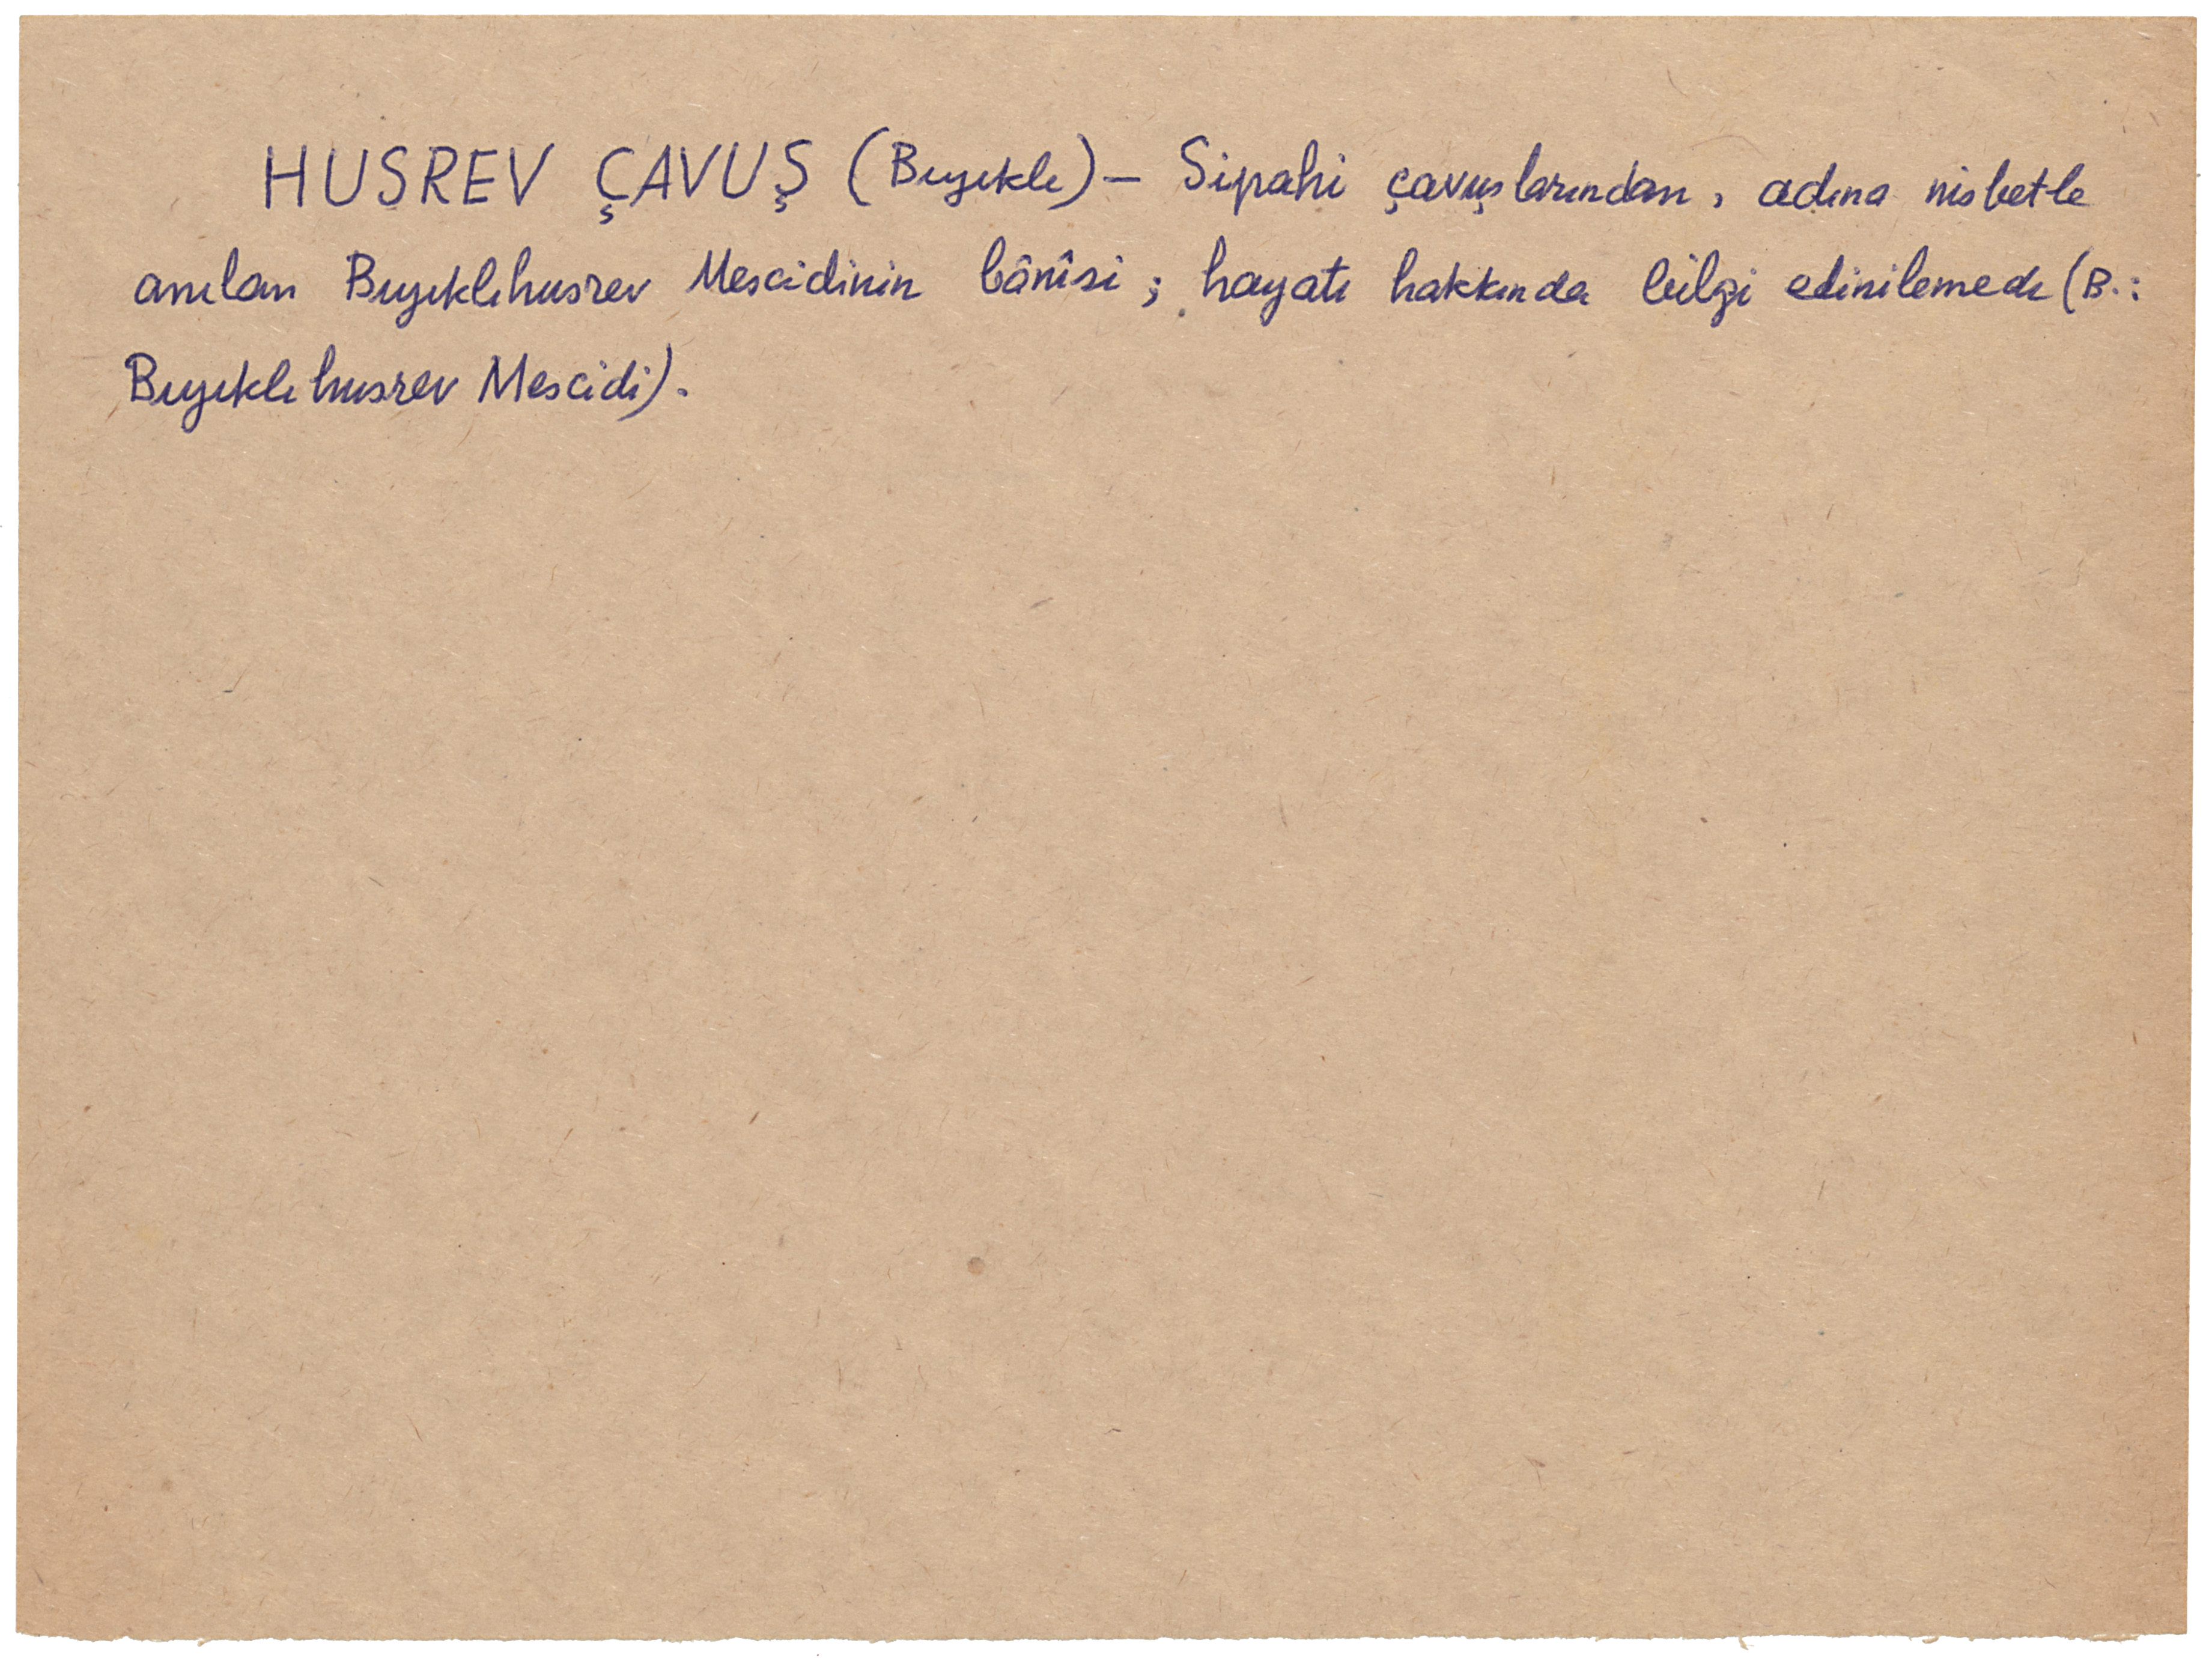 HUSREV ÇAVUŞ (Bıyıklı) — Sipahi çavuşlarından, adına nisbetle
anılan Bıyıklıhusrev Mescidinin bânîsi; hayatı hakkında bilgi edinilemedi (B.:
Bıyıklıhusrev Mescidi).